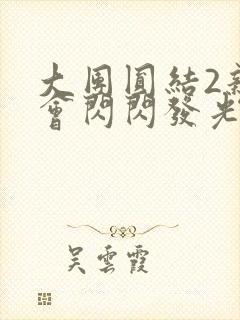 大團圓結2新
會閃閃發光
吳雲霞